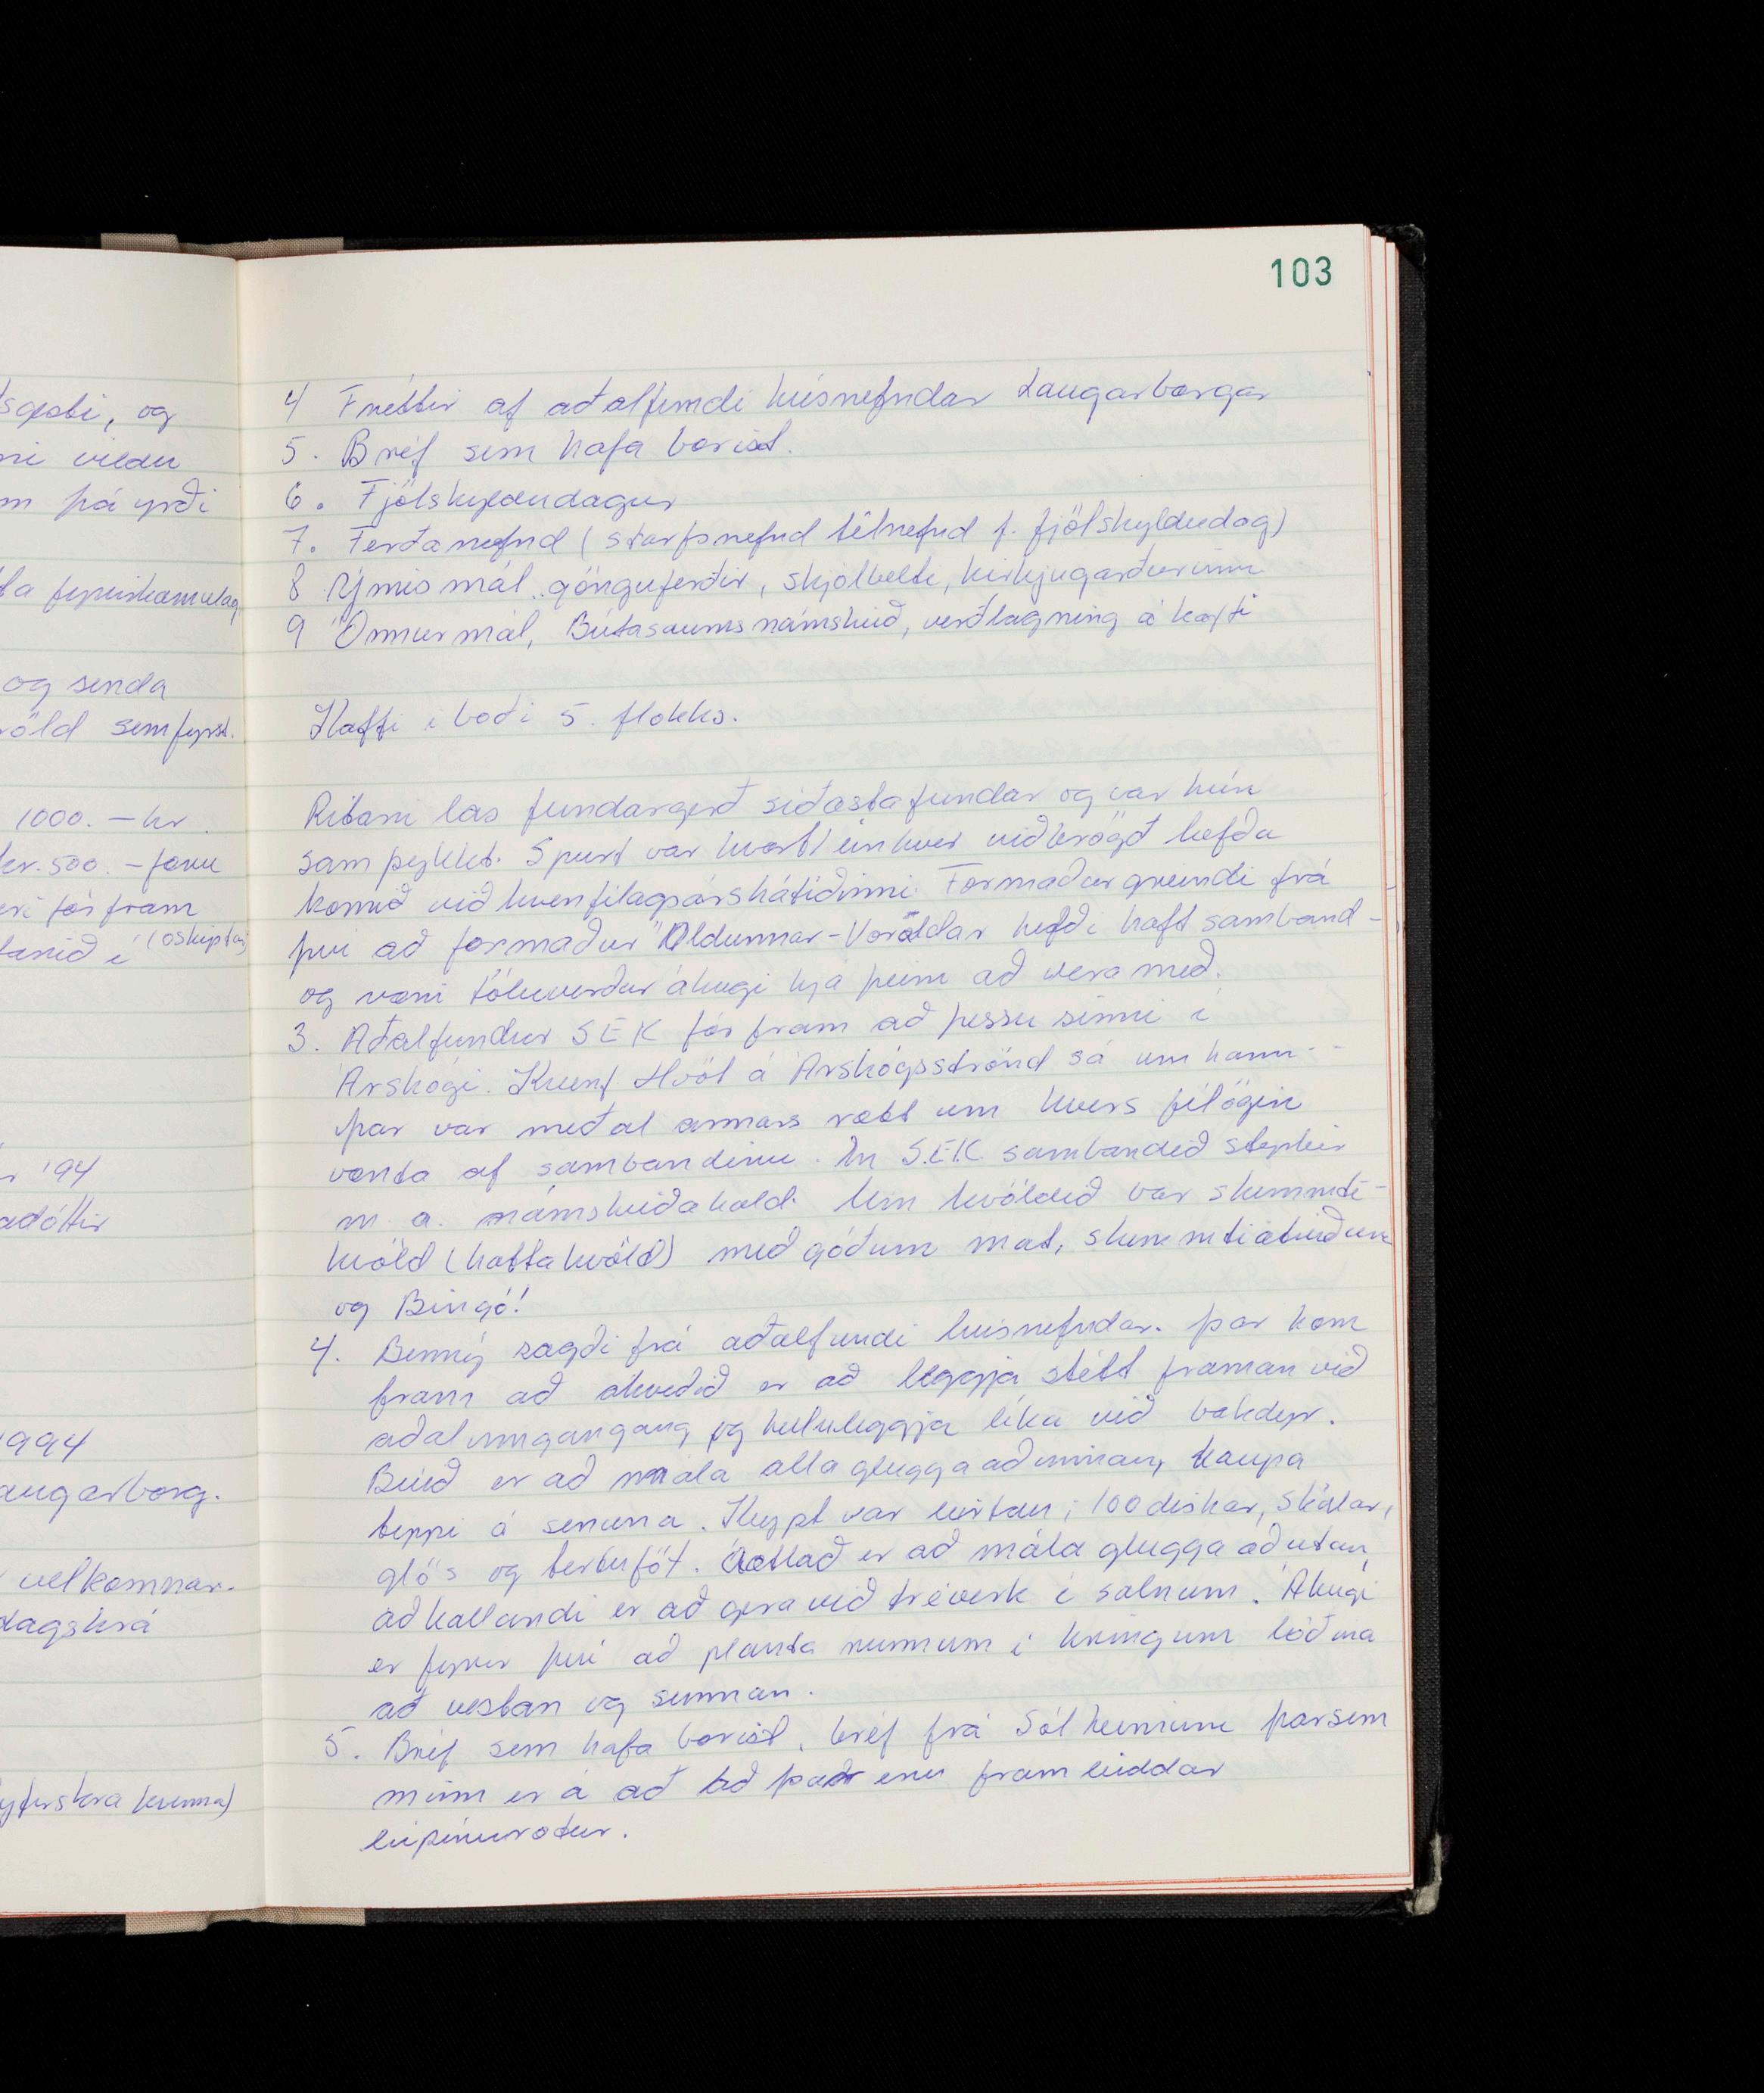 sgesti, og
ni vildu
m þá yrði
ta fyrirkomulag
og senda
völd sem fyrst.
1000.- kr.
kr. 500.- fòru
eri fór fram
tarið í (óskiptar)
r '94
adóttir
1994
augarborg.
velkomnar.
dagskrá
yfirstra kvenna)
103
4 Fréttir af aðalfundi húsnefndar Laugarborgar
5. Bréf sem hafa borist.
6. Fjölskyldudagur
7. Ferðanefnd (starfsnefnd tilnefnd f. fjölskyldudag)
8 Ýmis mál.. gönguferðir, skjólbelti, kirkjugarðurinn
9 Önnur mál, Bútasaumsnámskeið, verðlagning á kaffi
Kaffi í boði 5. flokks.
Ritari las fundargerð síðasta fundar og var hún
samþykkt. Spurt var hvort einhver viðbrögð hefðu
komið við kvenfélagsárshátíðinni. Formaður greindi frá
því að formaður Öldunnar-Voraldar hefði haft samband-
og væri töluverður áhugi hjá þeim að vera með.
3. Aðalfundur SEK fór fram að þessu sinni í
Árskógi. Kvenf. Hvöt á Árskógsströnd sá um hann..
þar var meðal annars rætt um hvers félögin
vænta af sambandinu. En S.E.K. sambandið styrkir
m.a. námskeiðahald. Um kvöldið var skemmti-
kvöld (hattakvöld) með góðum mat, skemmtiatriðum
og Bingó!
4. Benný sagði frá aðalfundi húsnefndar. þar kom
fram að ákveðið er að leggja stétt framan við
aðalinngangang og hellulleggja líka við bakdyr.
Búið er að mála alla glugga að innan, kaupa
teppi á senuna. Keypt var leirtau; 100 diskar, skálar,
glös og tertuföt. Áætlað er að mála glugga að utan,
aðkallandi er að gera við tréverk í salnum. Áhugi
er fyrir því að planta runnum í kringum lóðina
að vestan og sunnan.
5. Bréf sem hafa borist. bréf frá Sólheimum þar sem
minn er á að að þar eru framleiddar
lúpínurótur.